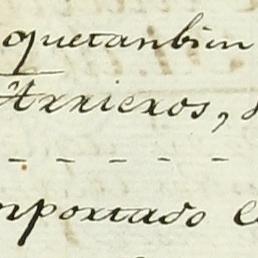 quetanbien
Arrieros,
- - - - - -
mportado